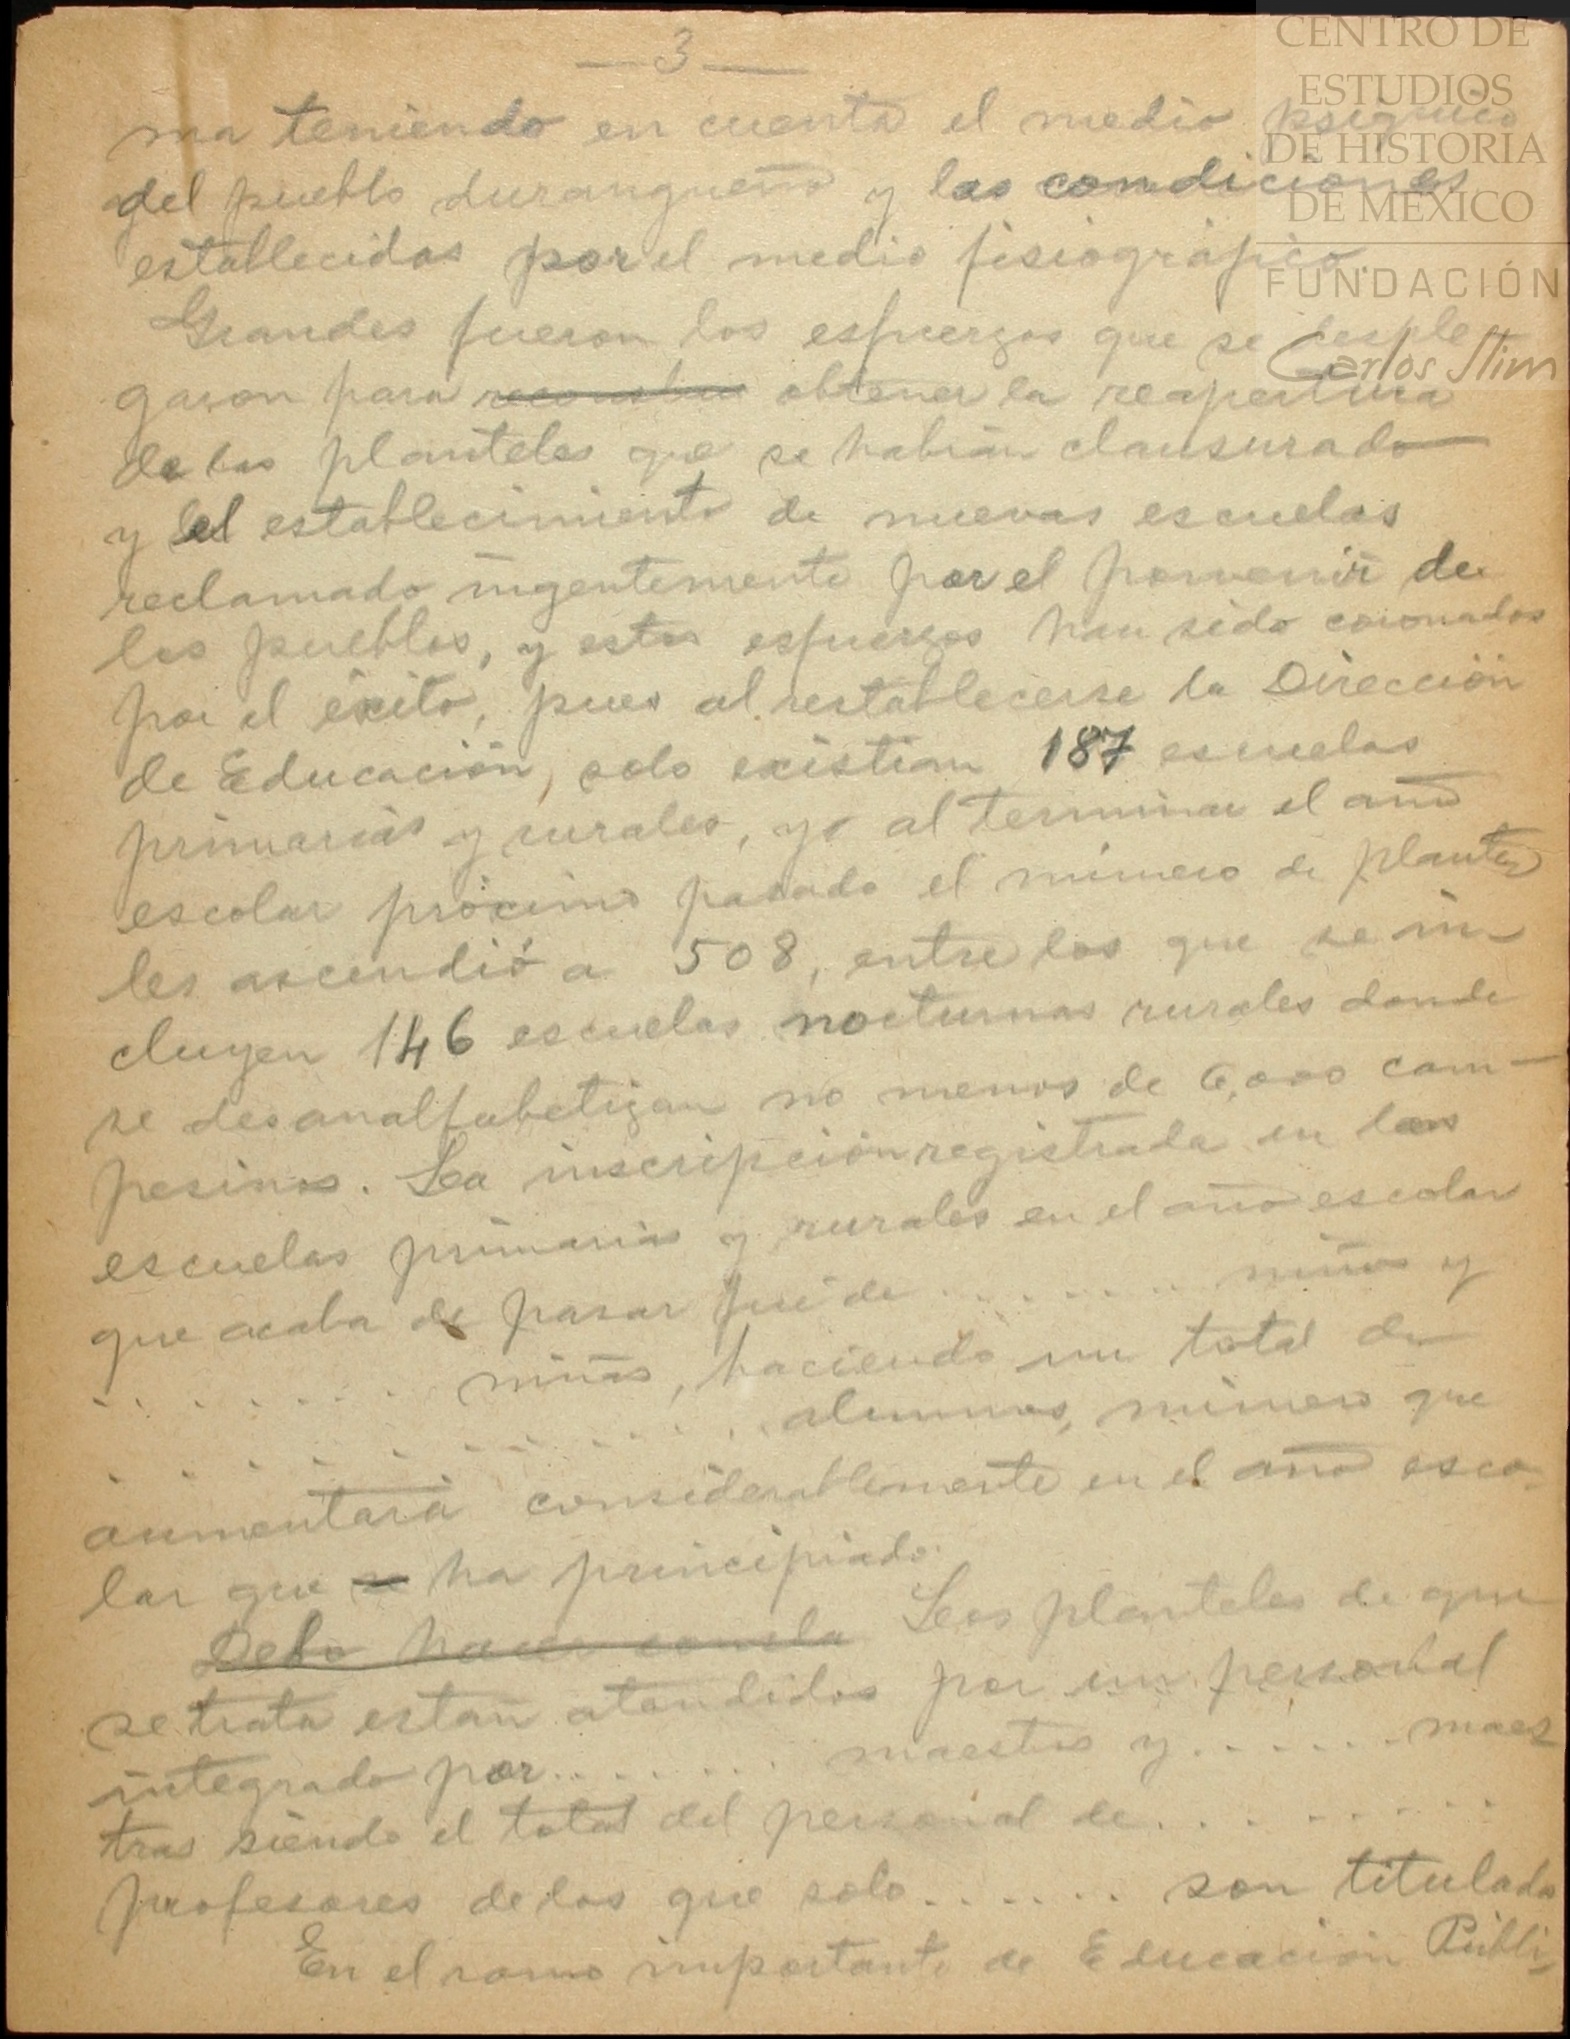 — 3 —
CENTRO DE
ESTUDIOS
DE HISTORIA
DE MÉXICO
FUNDACIÓN
Carlos Slim
ma teniendo en cuenta el medio psiquico
del pueblo durangueño y las condiciones
establecidas por el medio fisiográfico.
Grandes fueron los esfuerzos que se desple
garon para obtener la reapertura
de los planteles que se habian clausurado
y el establecimiento de nuevas escuelas
reclamado ingentemente por el porvenir de
los pueblos, y estos esfuerzos han sido coronados
por el éxito, pues al restablecerse la Dirección
de Educación, solo existian 187 escuelas
primarias y rurales, y al terminar el año
escolar próximo pasado el número de plante
les ascendió a 508, entre los que se in-
cluyen 146 escuelas nocturnas rurales donde
se desanalfabetizan no menos de 6,000 cam-
pesinos. La inscripción registrada en las
escuelas primarias y rurales en el año escolar
que acaba de pasar fué de . . . . . . . niños y
. . . . . . . niñas, haciendo un total de
. . . . . . . . . . . . alumnos, número que
aumentará considerablemente en el año esco-
lar que se ha principiado.
Debo hacer Los planteles de que
se trata están atendidos por un personal
integrado por . . . . . . . maestros y . . . . . . maes
tras siendo el total del personal de . . . . . . . . .
profesores de los que solo . . . . . . son titulados
En el ramo importante de Educación Públi-